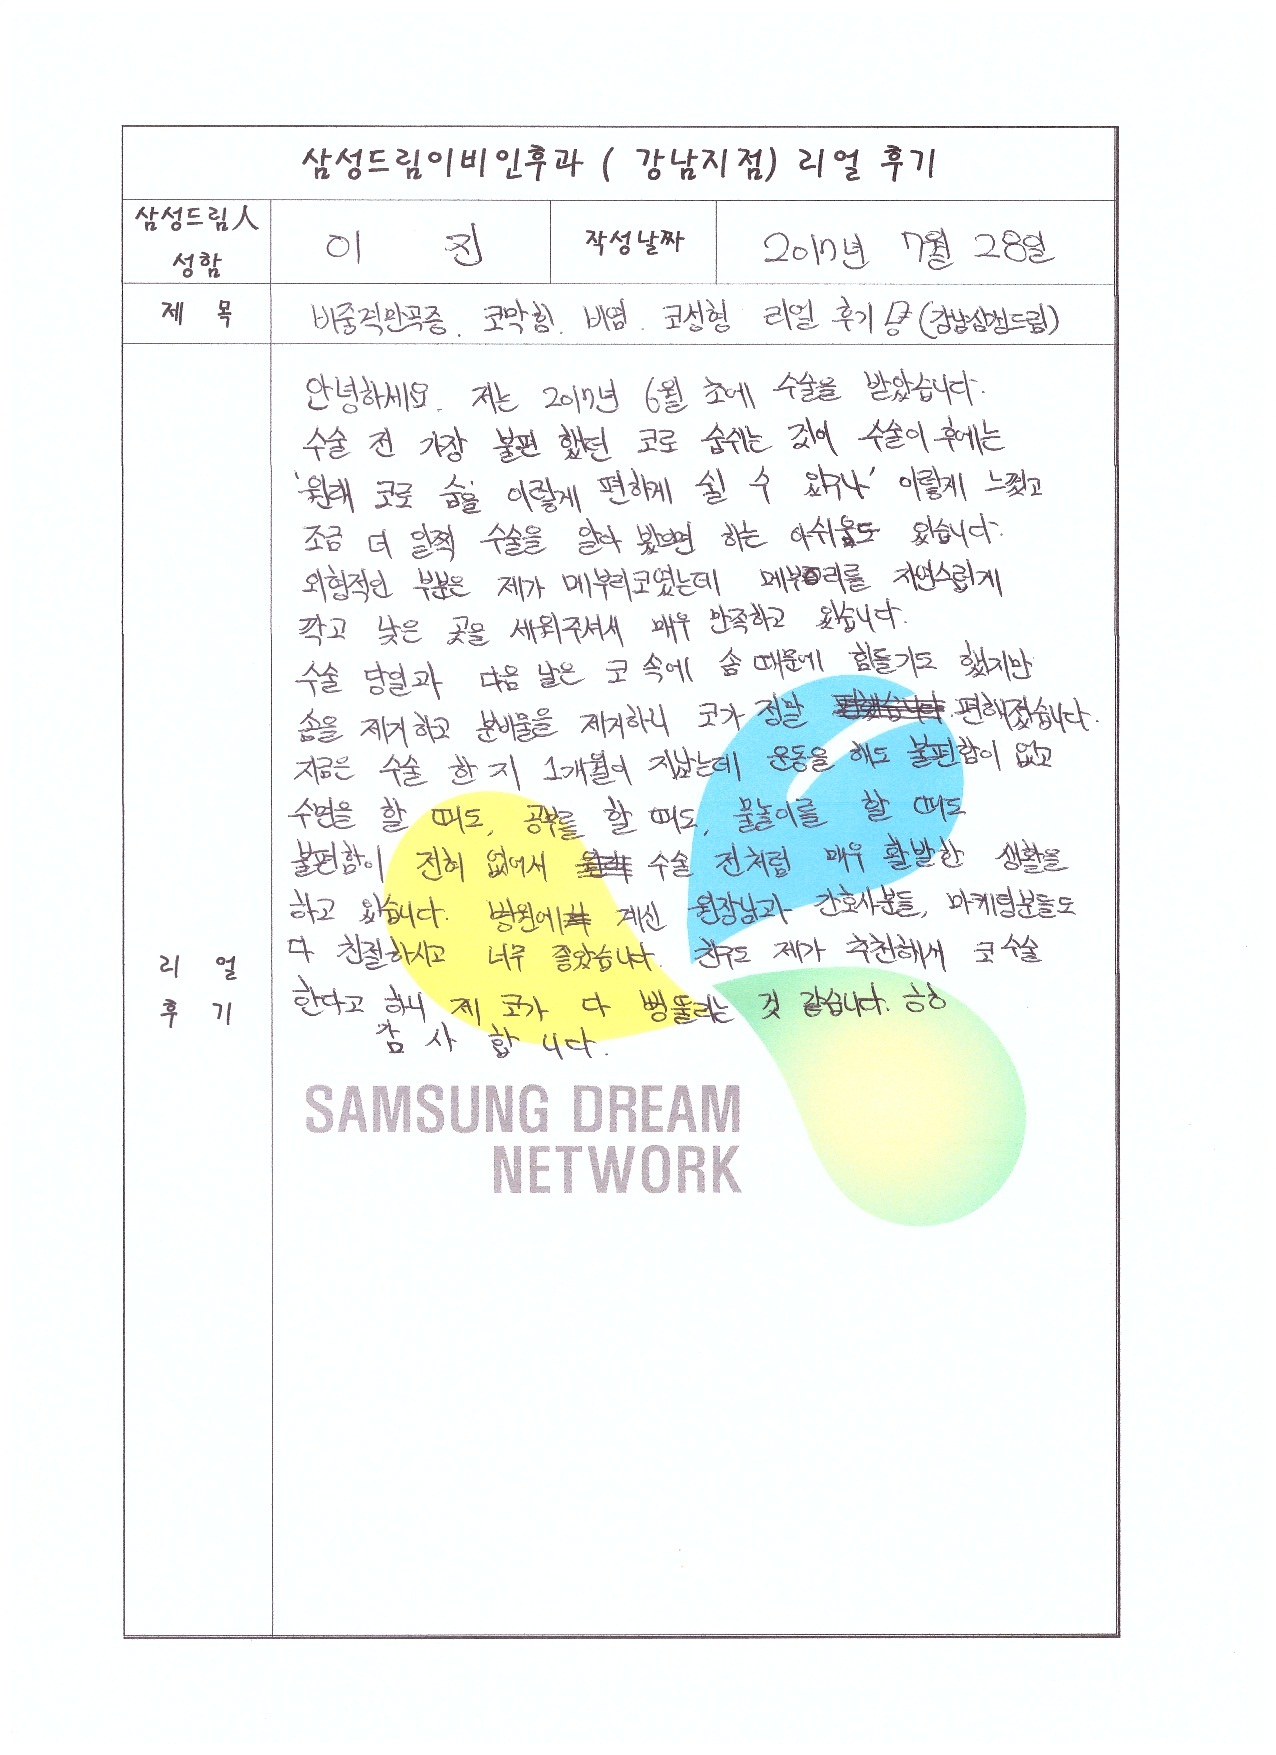 삼성드림이비인후과 ( 강남지점) 리얼 후기
삼성드림人 성함
이 진
작성날짜
2017년 7월 28일
제 목
비중격만곡증. 코막힘. 비염. 코성형 리얼 후기 (강남삼성드림)
리 얼
후 기
안녕하세요. 저는 2017년 6월 초에 수술을 받았습니다.
수술 전 가장 불편 했던 코로 숨쉬는 것이 수술이 후에는
'원래 코로 숨을 이렇게 편하게 쉴 수 있구나' 이렇게 느꼈고
조금 더 일찍 수술을 알아 봤으면 하는 아쉬움도 있습니다.
외형적인 부분은 제가 메부리코였는데 메부리를 자연스럽게
깍고 낮은 곳을 세워주셔서 매우 만족하고 있습니다.
수술 당일과 다음 날은 코 속에 솜 때문에 힘들기도 했지만
솜을 제거하고 분비물을 제거하니 코가 정말 편해졌습니다.
지금은 수술 한 지 1개월이 지났는데 운동을 해도 불편함이 없고
수면을 할 때도, 공부를 할 때도, 물놀이를 할 때도
불편함이 전혀 없어서 수술 전처럼 매우 활발한 생활을
하고 있습니다. 병원에 계신 원장님과 간호사분들, 마케팅분들도
다 친절하시고 너무 좋았습니다. 친구도 제가 추천해서 코 수술
한다고 하니 제 코가 다 뻥뚫리는 것 같습니다. ㅎㅎ
감 사 합 니다.
SAMSUNG DREAM
NETWORK